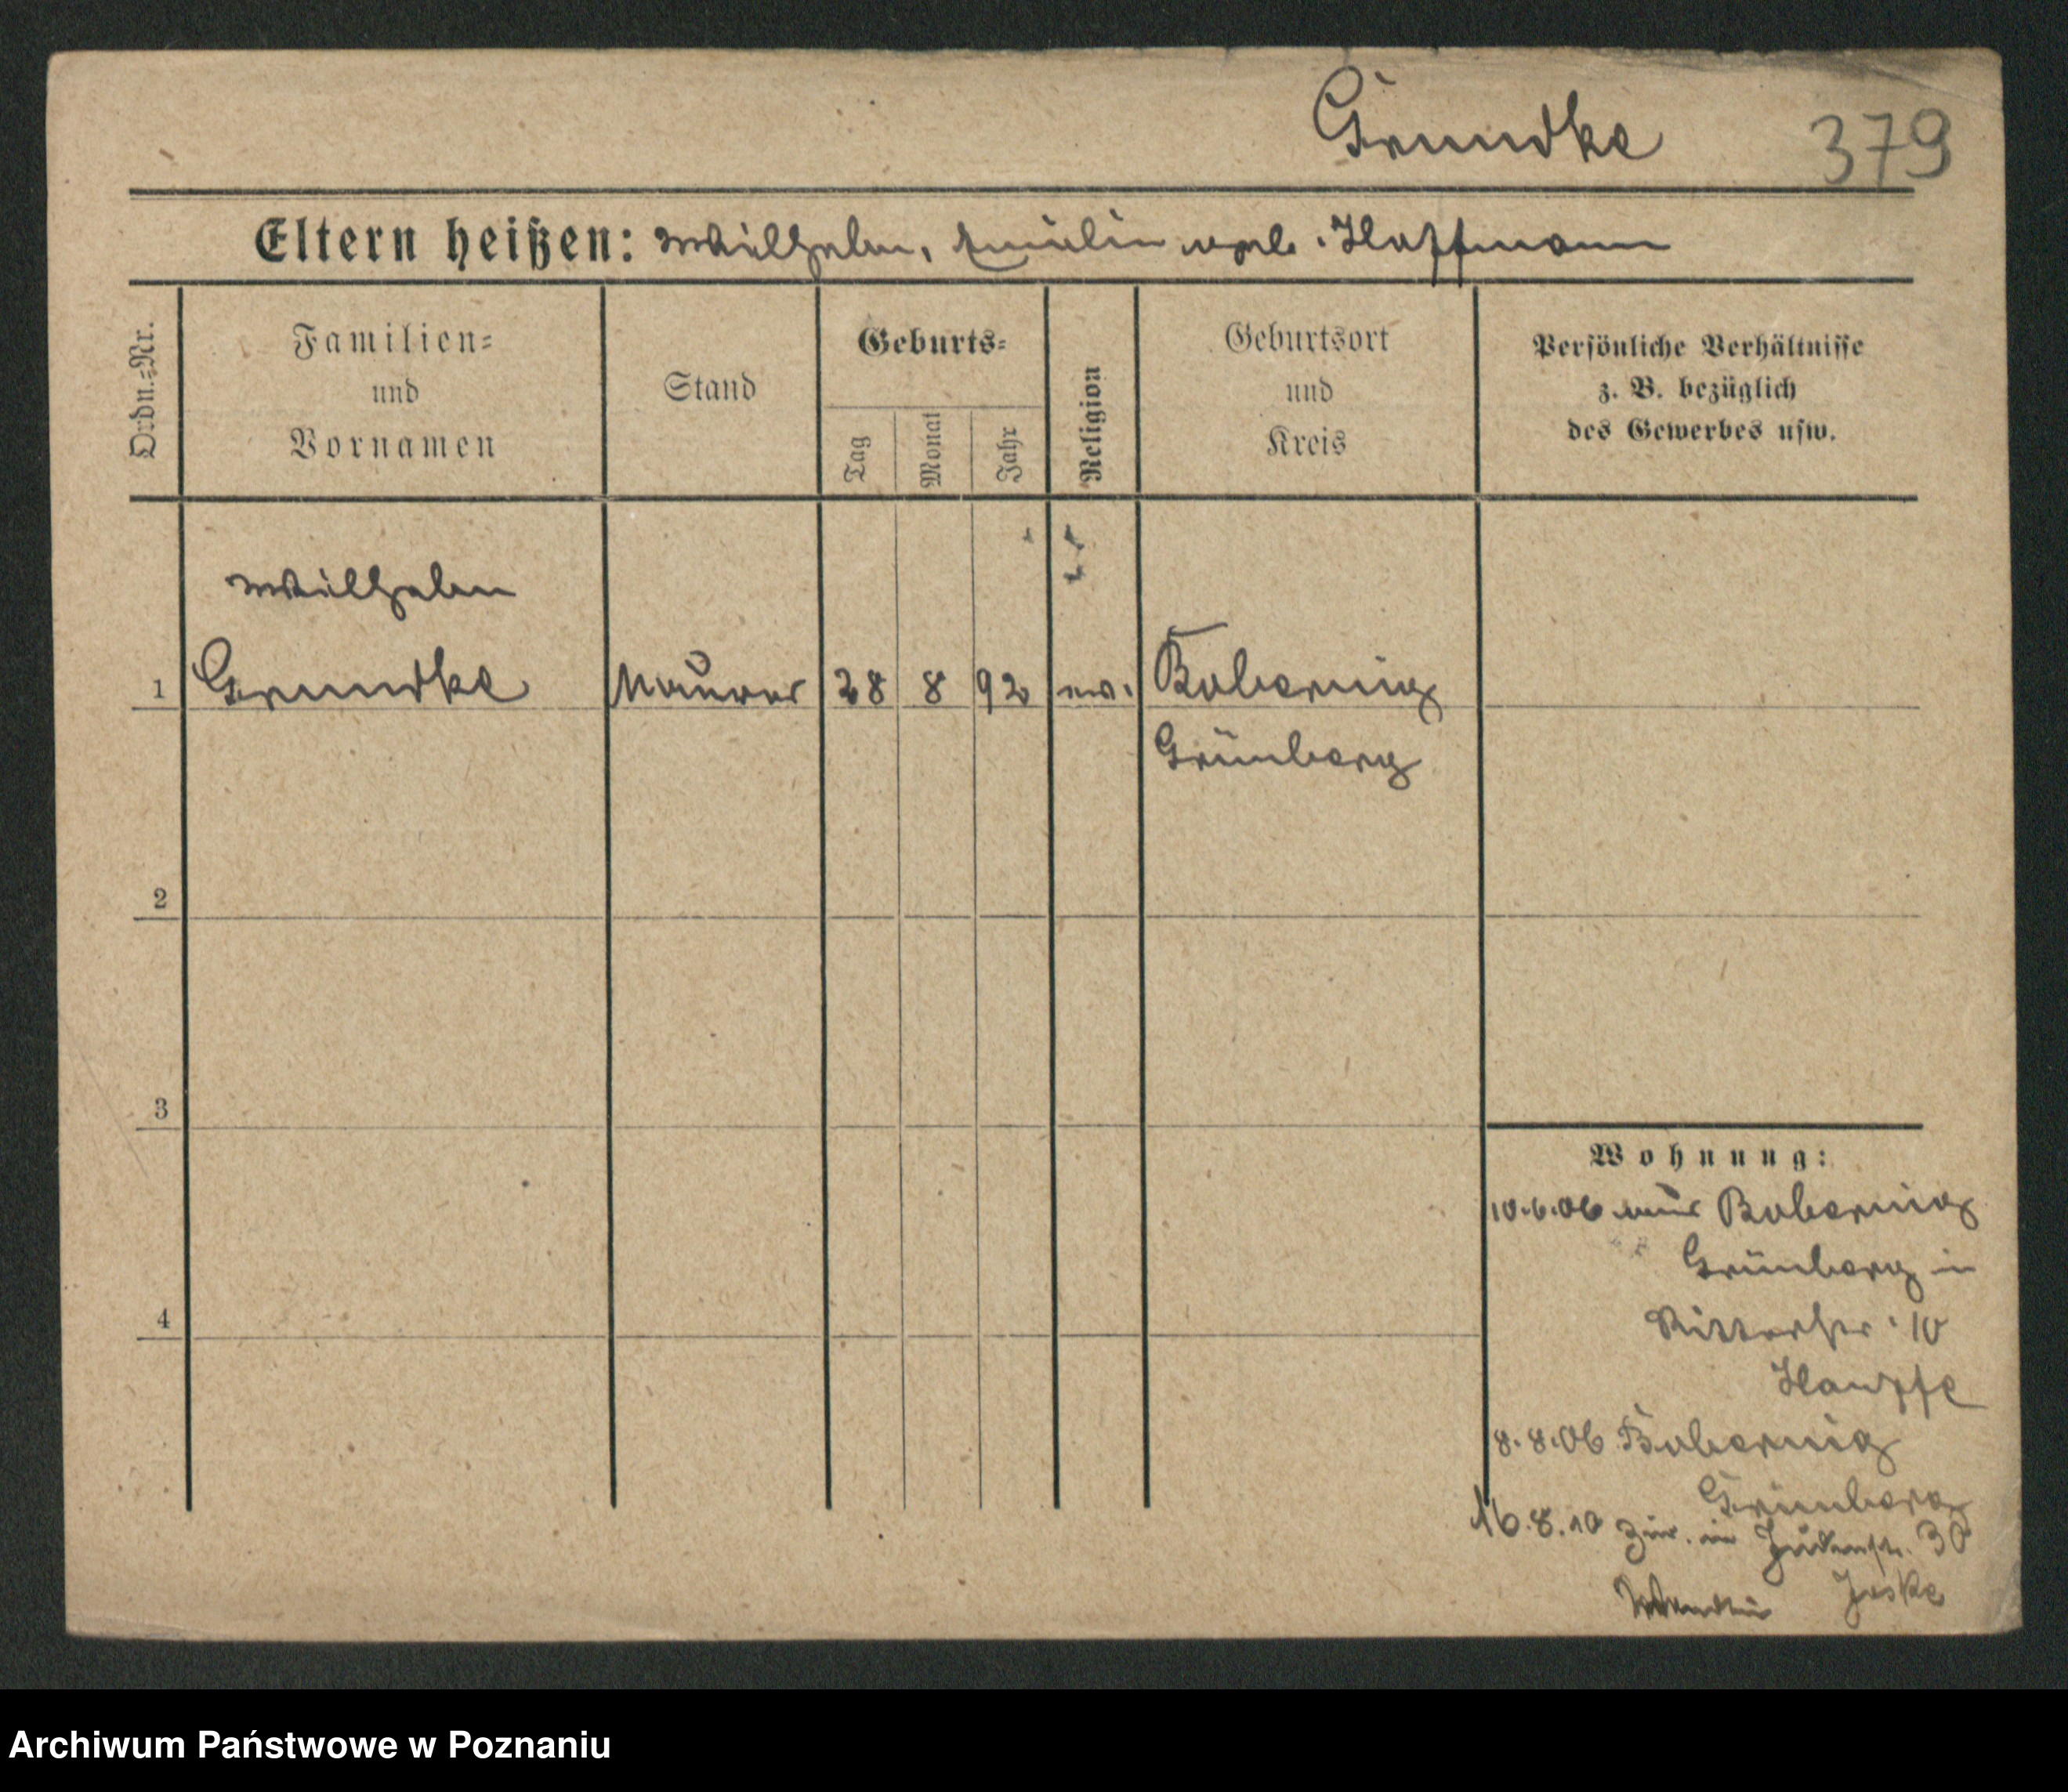 Grundke 379
Eltern heißen: Wilhelm, Emilie geb. Hoffmann
Ordn.-Nr.
Familien-
und
Vornamen
Stand
Geburts-
Tag
Monat
Jahr
Religion
Geburtsort
und
Kreis
Persönliche Verhältnisse
z. B. bezüglich
des Gewerbes usw.
Wilhelm
1 Grundke Maurer 28 8 92 ev. Bobernig
Grünberg
2
3
4
Wohnung:
10.6.06 aus Bobernig
Grünberg in
Ritterstr. 10
8.8.06 Bobernig
Grünberg
16.8.10 zur. in Judenstr. 30
Jeske
Archiwum Państwowe w Poznaniu